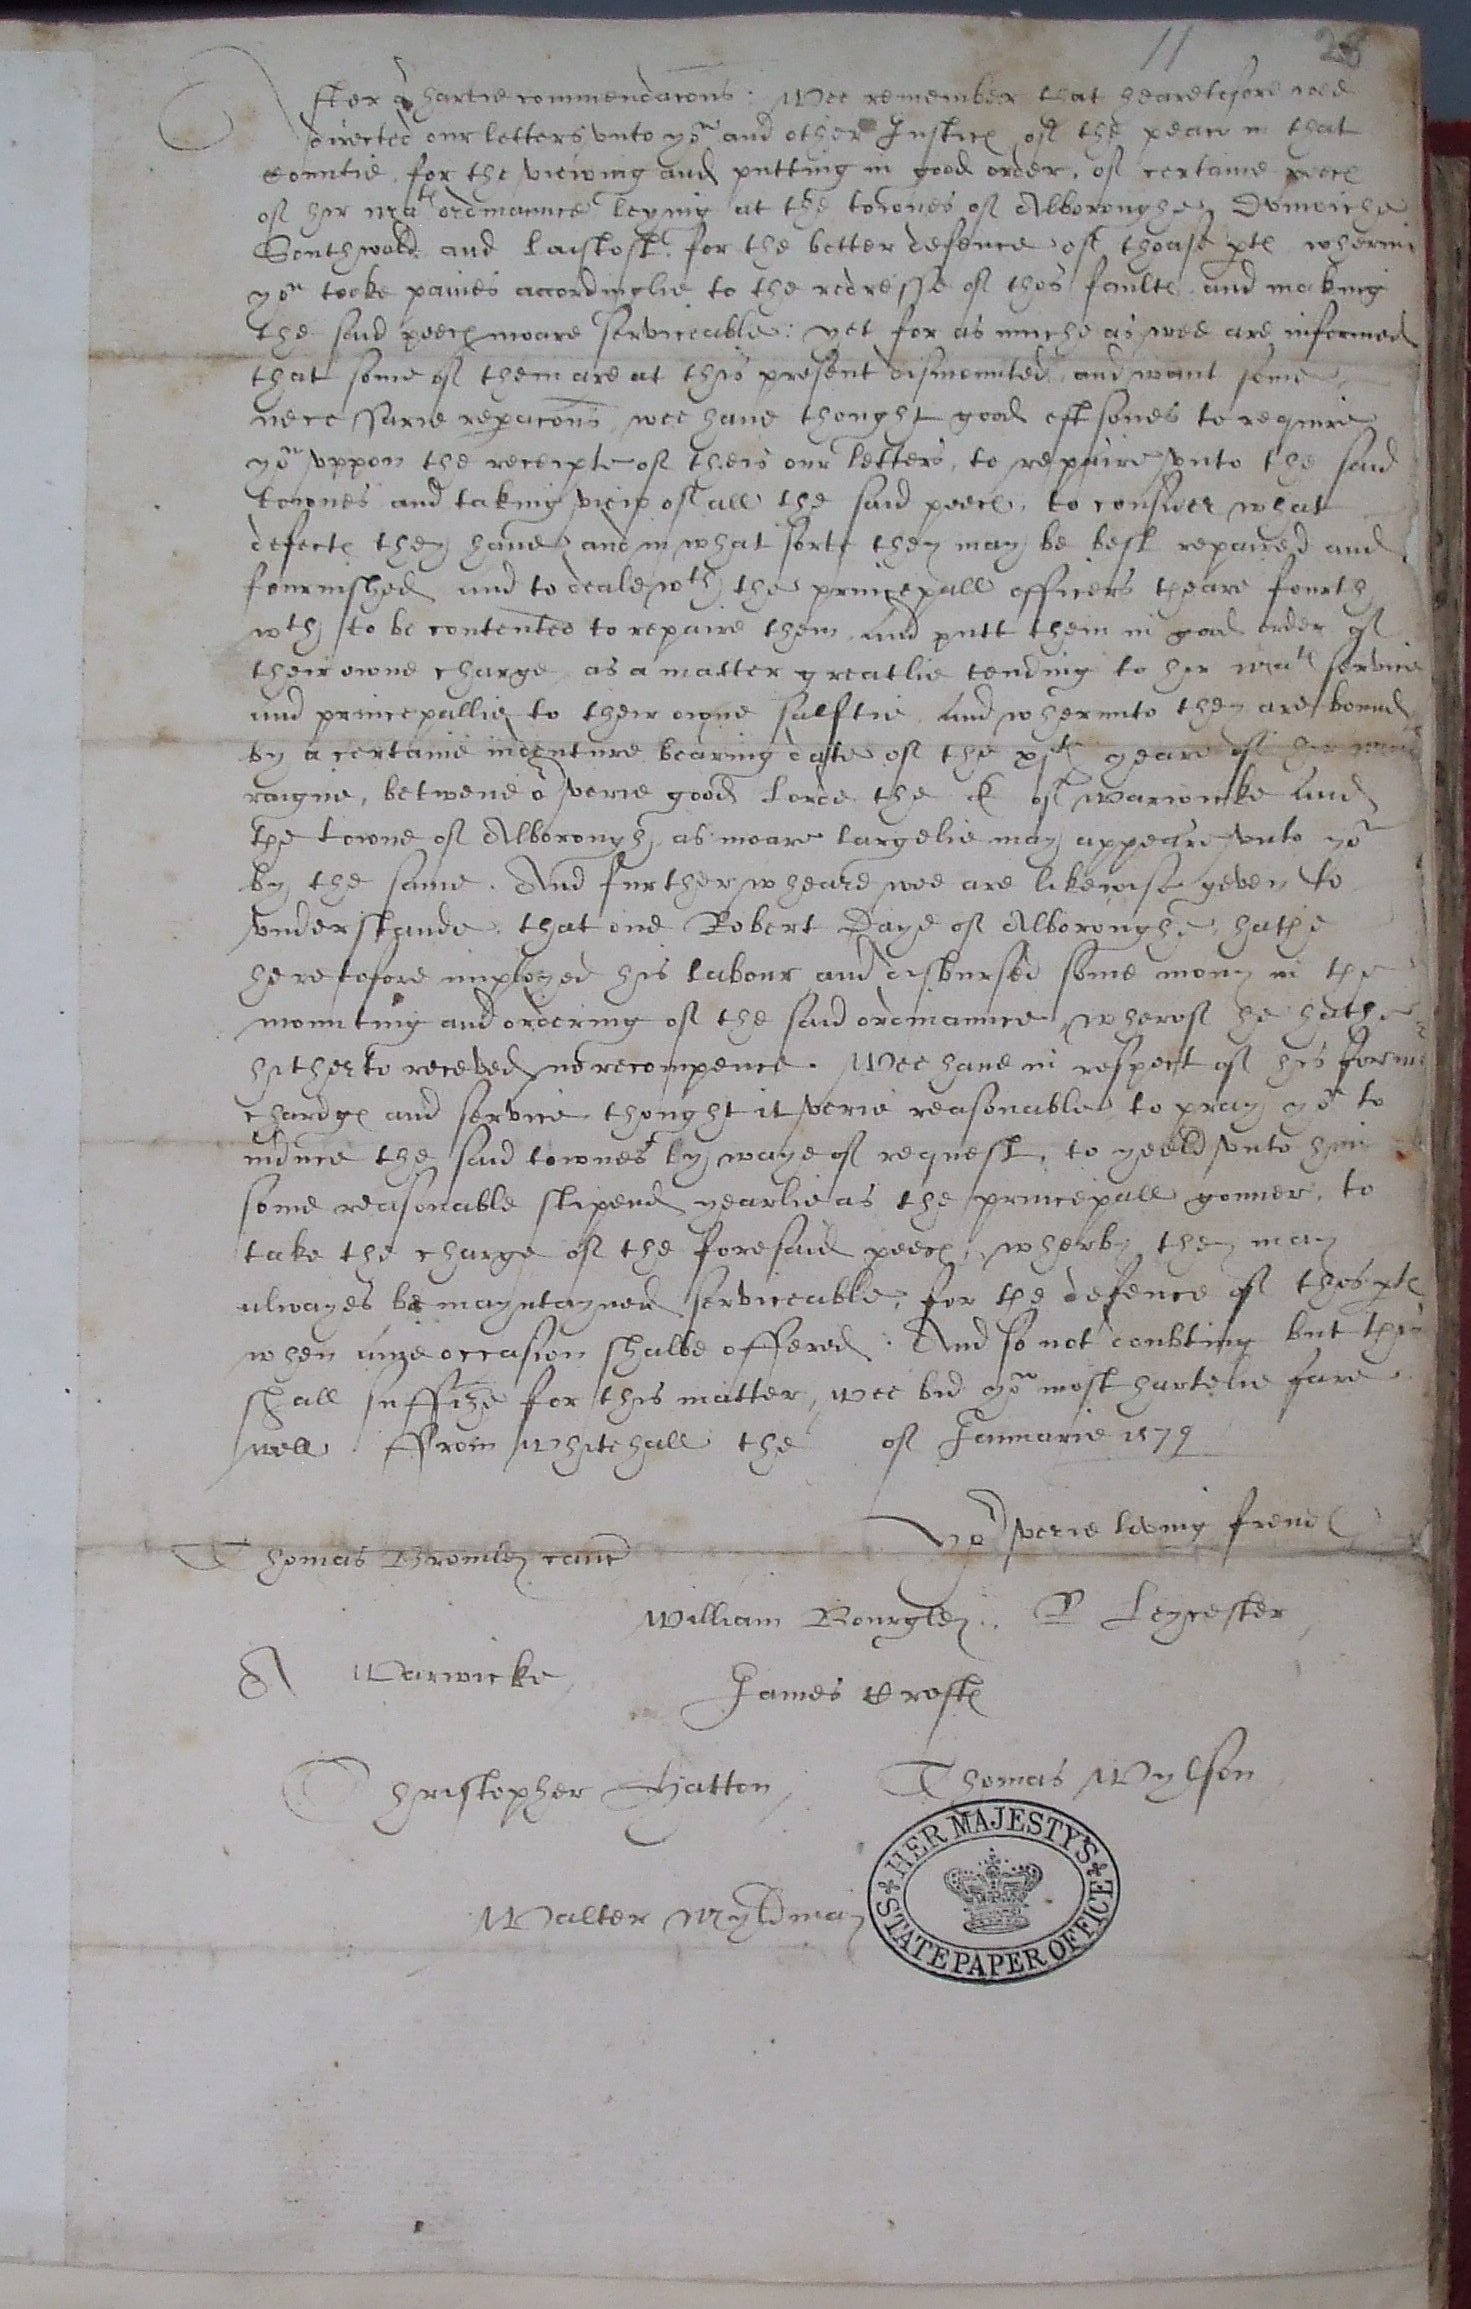 11 28
After or hartie commendacons: Wee remember that hearetofore wee
directed our letters vnto yor and other Justices of the peace in that
Countie for the viewing and putting in good order, of certaine peeces
of her mates ordinaunce leying at the townes of Alboroughe, Donwiche
Southwold and Laistoft for the better defence of thoase ptes wherein
yow tooke paines accordinglie to the redresse of thos faultes and making
the said peeces moare serviceable: yet for as muche as wee are informed
that some of them are at this present dismounted and want some
necessarie repacons, wee haue thought good eftsones to require
yow vppon the receipte of theis our letters, to repaire vnto the said
townes and taking view of all the said peeces, to consider what
defectes they haue and in what sorte they may be best repaired and
fournished and to deale wth the princepall officers theare fourth
wth to be contented to repaire them and putt them in good order of
their owne charge as a matter greatlie tending to her mates service
and princepallie to their owne salftie and wherunto they are bound
by a certaine indenture bearing date of the xjth yeare of her
raigne, betwene or verie good Lorde the E of Warwicke and
the towne of Alborough, as moare largelie may appeare vnto yow
by the same. And further wheare wee are likewise geven to
vnderstande that one Robert Daye of Alboroughe hathe
heretofore imployed his labour and disbursed some mony in the
mounting and ordering of the said ordinaunce, wherof he hathe
hitherto receved no recompence. Wee haue in respect of his former
chardges and service thought it verie reasonable to pray yow to
induce the said townes by waye of request, to yeeld vnto him
some reasonable stipend yearlie as the princepall gonner, to
take the charge of the foresaid peeces, wherby they may
alwayes be mayntayned serviceable, for the defence of thos ptes
when anye occasion shalbe offered. And so not doubting but this
shall suffize for this matter, wee bid yow most hartelie fare
well ffrom Whitehall the of Januarie 1579
Yor verie loving frendes
Thomas Bromley canc
William Bourgley. R Leycester
A Warwicke
James Croftes
Christopher Hatton
Thomas Wylson
Walter Myldmay
HER MAJESTY'S STATE PAPER OFFICE